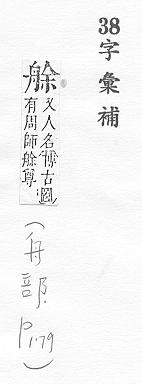 38字彙補
艅 又人名博古圖
有周師艅尊
(舟部 P.179)